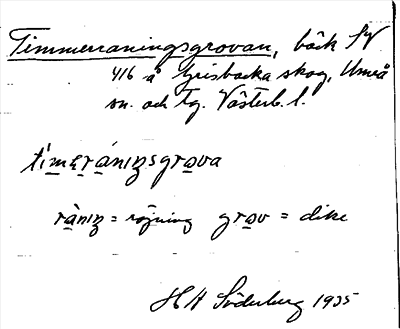 Timmerraningsgrovan, bäck SV
416 å Grisbacka skog, Umeå
sn. och tg. Västerb. l.
tìmeránıŋsgrova
rànıŋ = röjning grov = dike
H H Söderberg 1935